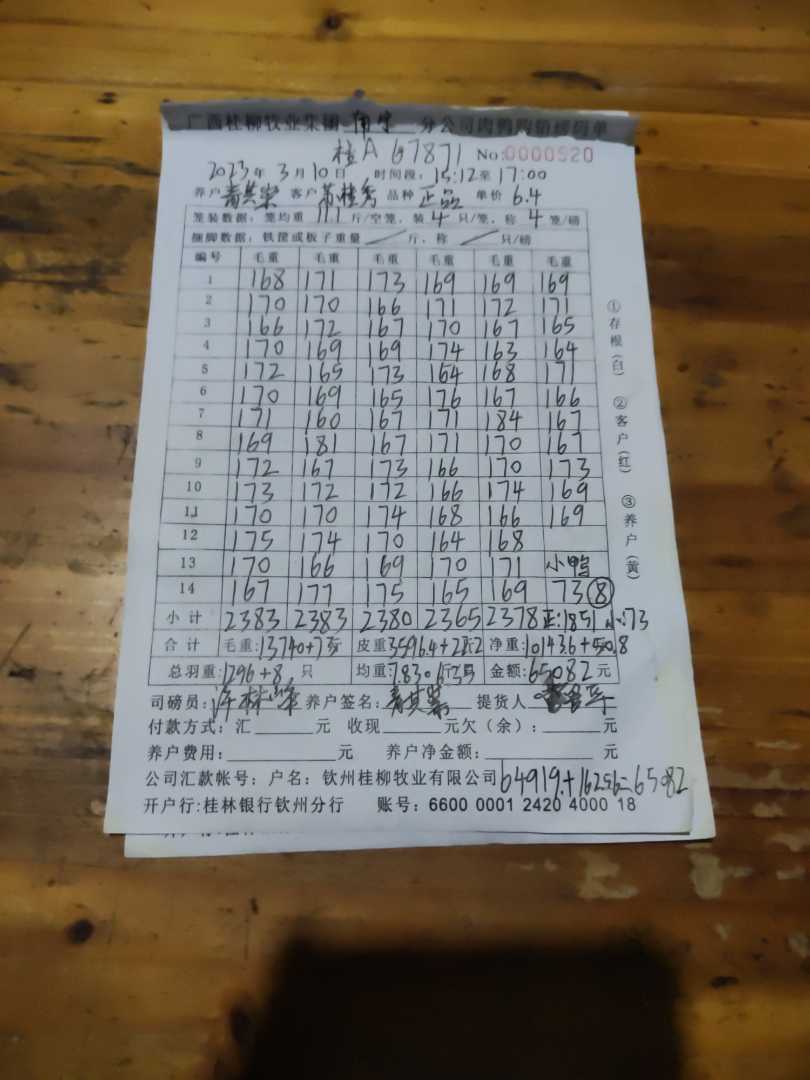 广西桂柳牧业集团 南宁 分公司肉鸭购销榜码单
桂A 67871 No:0000520
2023年 3月10日 时间段: 15:12至 17:00
养户 客户 品种 正品 单价 6.4
笼装数据: 笼均重 11.1 斤/空笼, 装 4 只/笼, 称 4 笼/磅
捆脚数据: 铁筐或板子重量 / 斤, 称 / 只/磅
编号 毛重 毛重 毛重 毛重 毛重 毛重
1 168 171 173 169 169 169
2 170 170 166 171 172 171
3 166 172 167 170 167 165
4 170 169 169 174 163 164
5 172 165 173 164 168 171
6 170 169 165 176 167 166
7 171 160 167 171 184 167
8 169 181 167 171 170 167
9 172 167 173 166 170 173
10 173 172 172 166 174 169
11 170 170 174 168 166 169
12 175 174 170 164 168
13 170 166 169 170 171 小鸭
14 167 177 175 165 169 73 ⑧
小计 2383 2383 2380 2365 2378 正:1851 小:73
合计 毛重:13740+73 皮重:3596.4+22.2 净重:10143.6+50.8
总羽重:1296+8只 均重:7.83 6.35 金额:65082元
司磅员: 养户签名: 提货人
付款方式: 汇 元 收现 元欠(余): 元
养户费用: 元 养户净金额: 元
公司汇款帐号: 户名: 钦州桂柳牧业有限公司 64919.+162.56=65082
开户行:桂林银行钦州分行 账号: 6600 0001 2420 4000 18
①存根(白) ②客户(红) ③养户(黄)